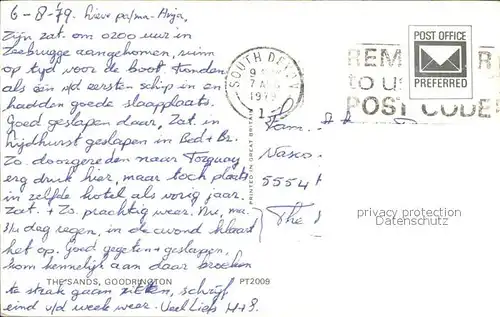 6-8-'79. Lieve pa/ma-Anja,
Zijn zat. om 0200 uur in
Zeebrugge aangekomen, ruim
op tijd voor de boot. Stonden
als één v/d eersten schip in en
hadden goede slaapplaats.
Goed geslapen daar, Zat. in
Lijdhurst geslapen in Bed + Br.
Zo. doorgereden naar Torquay
erg druk hier, maar toch plaats
in zelfde hotel als vorig jaar.
Zat. + Zo. prachtig weer. Nu, ma.
dag regen, in de avond klaart
het op. Goed gegeten + geslapen,
kom kennelijk aan daar broeken
te strak gaan zitten, schrijf
eind v/d week weer. Veel liefs H+
THE SANDS, GOODRINGTON PT2009
PRINTED IN GREAT BRITAIN
SOUTH DEVON
9
7 AUG
1979
1
REM R
to u
POST CODE
POST OFFICE
PREFERRED
Fam.
Nasco
5554
The
privacy protection
Datenschutz